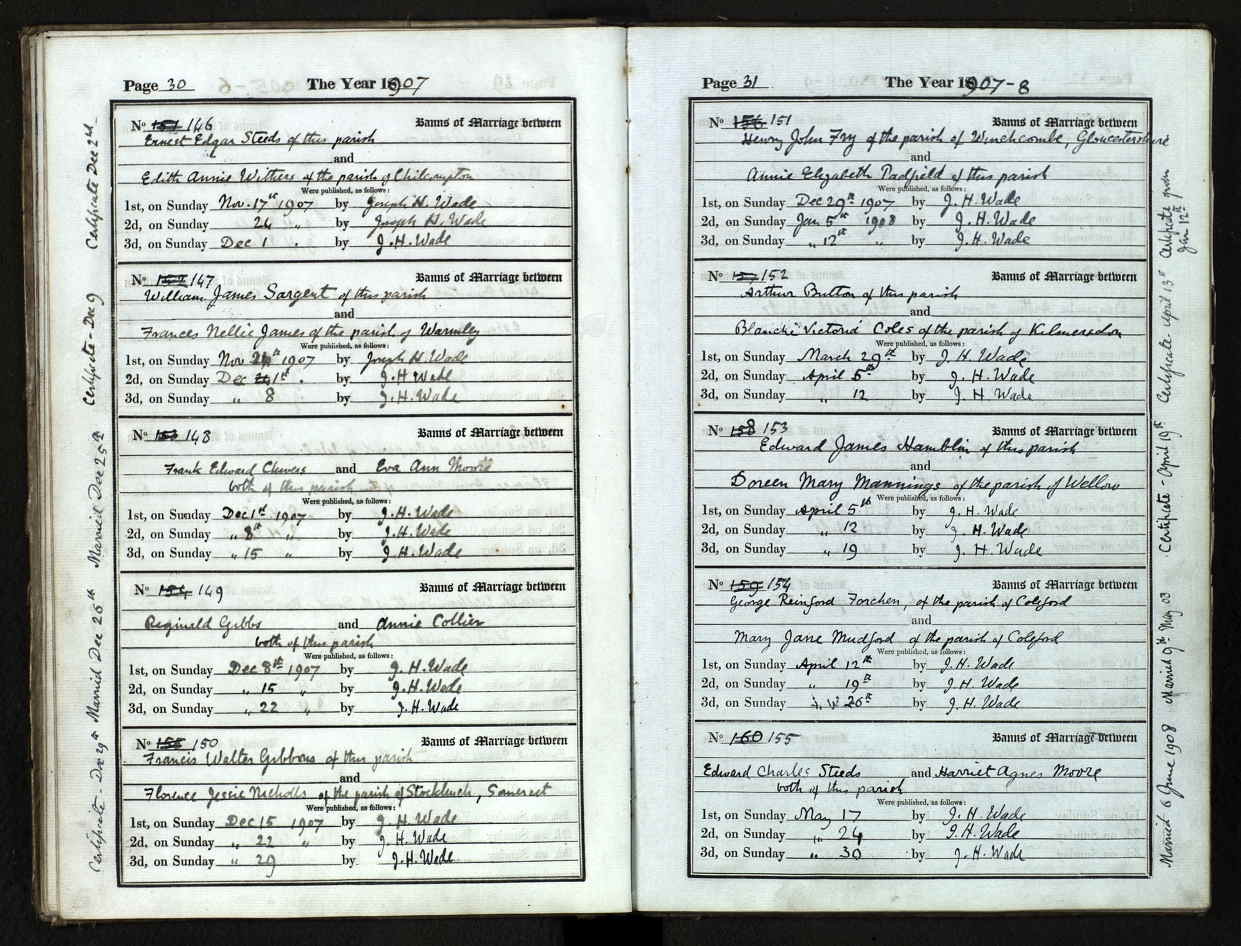 Page 30 The Year 1907
Certificate Dec 2nd
Certificate - Dec 9
Married Dec 25th
Married Dec 26th
Certificate - Dec 29th
No 151 146 Banns of Marriage between
Ernest Edgar Steeds of this parish
and
Edith Annie Withers of the parish of Chilcompton
Were published, as follows:
1st, on Sunday Nov. 17th 1907 by Joseph H. Wade
2d, on Sunday 24 " by Joseph H. Wade
3d, on Sunday Dec 1 . by J. H. Wade
No 152 147 Banns of Marriage between
William James Sargent of this parish
and
Frances Nellie James of the parish of Warmley
Were published, as follows:
1st, on Sunday Nov 24th 1907 by Joseph H. Wade
2d, on Sunday Dec 1st . by J. H Wade
3d, on Sunday " 8 by J. H. Wade
No 153 148 Banns of Marriage between
Frank Edward Chivers and Eva Ann Moore
both of this parish
Were published, as follows:
1st, on Sunday Dec 1st 1907 by J. H. Wade
2d, on Sunday " 8th " by J. H. Wade
3d, on Sunday " 15 " by J. H. Wade
No 154 149 Banns of Marriage between
Reginald Gibbs and Annie Collier
both of this parish
Were published, as follows:
1st, on Sunday Dec 8th 1907 by J. H. Wade
2d, on Sunday " 15 " by J. H. Wade
3d, on Sunday " 22 " by J. H. Wade
No 155 150 Banns of Marriage between
Francis Walter Gibbons of this parish
and
Florence Jessie Nicholls of the parish of Stocklinch, Somerset
Were published, as follows:
1st, on Sunday Dec 15 1907 by J. H. Wade
2d, on Sunday " 22 " by J. H. Wade
3d, on Sunday " 29 by J. H. Wade
Page 31 The Year 1907-8
No 156 151 Banns of Marriage between
Henry John Fry of the parish of Winchcombe, Gloucestershire
and
Annie Elizabeth Padfield of this parish
Were published, as follows:
1st, on Sunday Dec 29th 1907 by J. H. Wade
2d, on Sunday Jan 5th 1908 by J. H. Wade
3d, on Sunday " 12th " by J. H. Wade
No 157 152 Banns of Marriage between
Arthur Button of this parish
and
Blanche Victoria Coles of the parish of Kilmersdon
Were published, as follows:
1st, on Sunday March 29th by J. H. Wade
2d, on Sunday April 5th by J. H. Wade
3d, on Sunday " 12 by J. H Wade
No 158 153 Banns of Marriage between
Edward James Hamblin of this parish
and
Doreen Mary Mannings of the parish of Wellow
Were published, as follows:
1st, on Sunday April 5th by J. H. Wade
2d, on Sunday " 12 by J. H. Wade
3d, on Sunday " 19 by J. H. Wade
No 159 154 Banns of Marriage between
George Reinford Forchen, of the parish of Coleford
and
Mary Jane Mudford of the parish of Coleford
Were published, as follows:
1st, on Sunday April 12th by J. H. Wade
2d, on Sunday " 19th by J. H. Wade
3d, on Sunday " 26th by J. H. Wade
No 160 155 Banns of Marriage between
Edward Charles Steeds and Harriet Agnes Moore
both of this parish
Were published, as follows:
1st, on Sunday May 17 by J. H. Wade
2d, on Sunday " 24 by J. H. Wade
3d, on Sunday " 30 by J. H. Wade
Certificate Jan 12th
Certificate - April 13th
Certificate - April 19th
Married 9th May 03
Married 6 June 1908